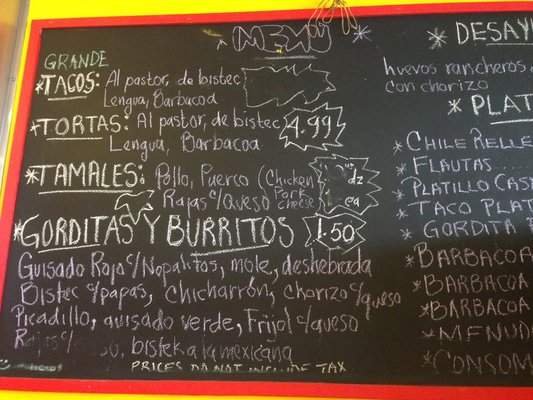 MENU
GRANDE
*TACOS: Al pastor, de bistec
Lengua, Barbacoa
*TORTAS: Al pastor, de bistec 4.99
Lengua, Barbacoa
*TAMALES: Pollo, Puerco (Chicken dz
Rajas c/Queso Pork Cheese ea
*GORDITAS Y BURRITOS 1.50
Guisado Rojo c/Nopalitos, mole, deshebrada
Bistec c/papas, Chicharrón, chorizo c/queso
Picadillo, guisado verde, Frijol c/queso
bistek a la mexicana
PRICES DO NOT INCLUDE TAX
* DESAY
huevos rancheros
con chorizo
* PLAT
*CHILE RELLE
*FLAUTAS
*PLATILLO CAS
*TACO PLAT
*GORDITA
*BARBACOA
*BARBACOA
*BARBACOA
*MENUD
*CONSOM